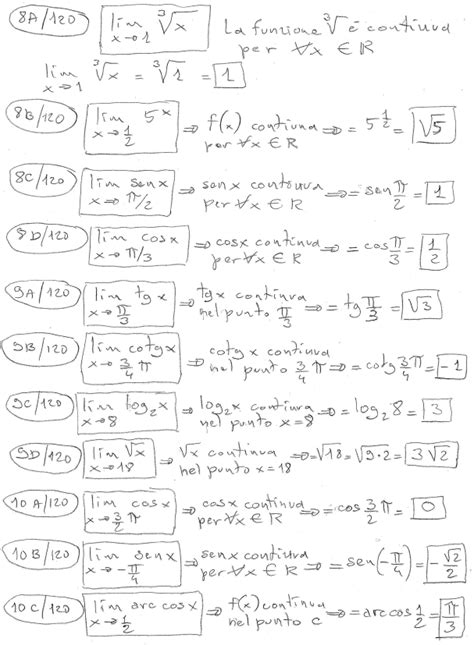 8A/120 lim x→1 ∛x La funzione ∛ è continua per ∀x ∈ ℝ
lim x→1 ∛x = ∛1 = 1
8B/120 lim x→1/2 5^x ⇒ f(x) continua per ∀x ∈ ℝ ⇒ = 5^(1/2) = √5
8C/120 lim x→π/2 sen x ⇒ sen x continua per ∀x ∈ ℝ ⇒ = sen π/2 = 1
8D/120 lim x→π/3 cos x ⇒ cos x continua per ∀x ∈ ℝ ⇒ = cos π/3 = 1/2
9A/120 lim x→π/3 tg x ⇒ tg x continua nel punto π/3 ⇒ = tg π/3 = √3
9B/120 lim x→3/4 π cotg x ⇒ cotg x continua nel punto 3/4 π ⇒ = cotg 3/4 π = -1
9C/120 lim x→8 log₂x ⇒ log₂x continua nel punto x=8 ⇒ = log₂8 = 3
9D/120 lim x→18 √x ⇒ √x continua nel punto x=18 ⇒ = √18 = √9·2 = 3√2
10A/120 lim x→3/2 π cos x ⇒ cos x continua per ∀x ∈ ℝ ⇒ = cos 3/2 π = 0
10B/120 lim x→-π/4 sen x ⇒ sen x continua per ∀x ∈ ℝ ⇒ = sen(-π/4) = -√2/2
10C/120 lim x→1/2 arc cos x ⇒ f(x) continua nel punto c ⇒ = arc cos 1/2 = π/3